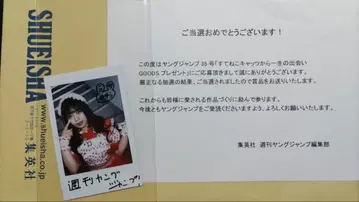 SHUEISHA
www.shueisha.co.jp
集英社
週刊ヤング
ジャンプ
ご当選おめでとうございます！
この度はヤングジャンプ35号「すてねこキャッツから一生の出会い
GOODSプレゼント」にご応募頂きまして誠にありがとうございます。
厳正なる抽選の結果、ご当選されましたので賞品をお送りいたします。
これからも皆様に愛される作品づくりに励んで参ります。
今後ともヤングジャンプをご愛読くださいますよう、よろしくお願いいたします。
集英社 週刊ヤングジャンプ編集部